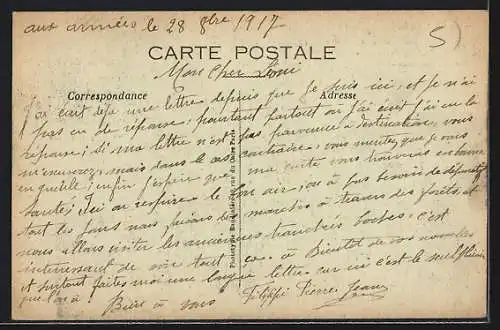 aux armées le 28 8bre 1917
5)
CARTE POSTALE
Mon cher
Correspondance
Adresse
J'ai écrit déjà une lettre depuis que je suis ici, et je n'ai
pas eu de réponse, pourtant partout où j'ai écrit j'ai eu la
réponse; si ma lettre n'est pas parvenue à destination, vous
m'excuserez, mais dans le cas contraire, vous
enfin j'espère que ma carte vous trouvera en bonne
santé; Ici on respire le bon air; on a pas besoin de
tout les jours nous faisons des marches à travers des forêts, et
nous allons visiter les anciennes tranchées boches, c'est
intéressant de voir tout ça. à Bientôt de vos nouvelles
et surtout faites moi une longue lettre car ici c'est le seul plaisir
que l'on a! Bien à vous
Pierre Jean
Phototypie rue du Paris